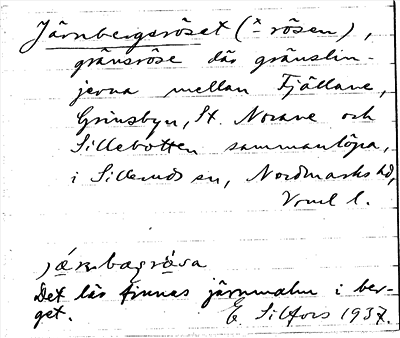 Järnbergsröset (x̄ rösen),
gränsröse där gränslin-
jerna mellan Fjällane,
Grinsbyn, St. Norane och
Sillebotten sammanlöpa,
i Silleruds sn, Nordmarks hd,
Vrml l.
járnbagrøsa
Det lär finnas järnmalm i ber-
get. E. Silfors 1937.